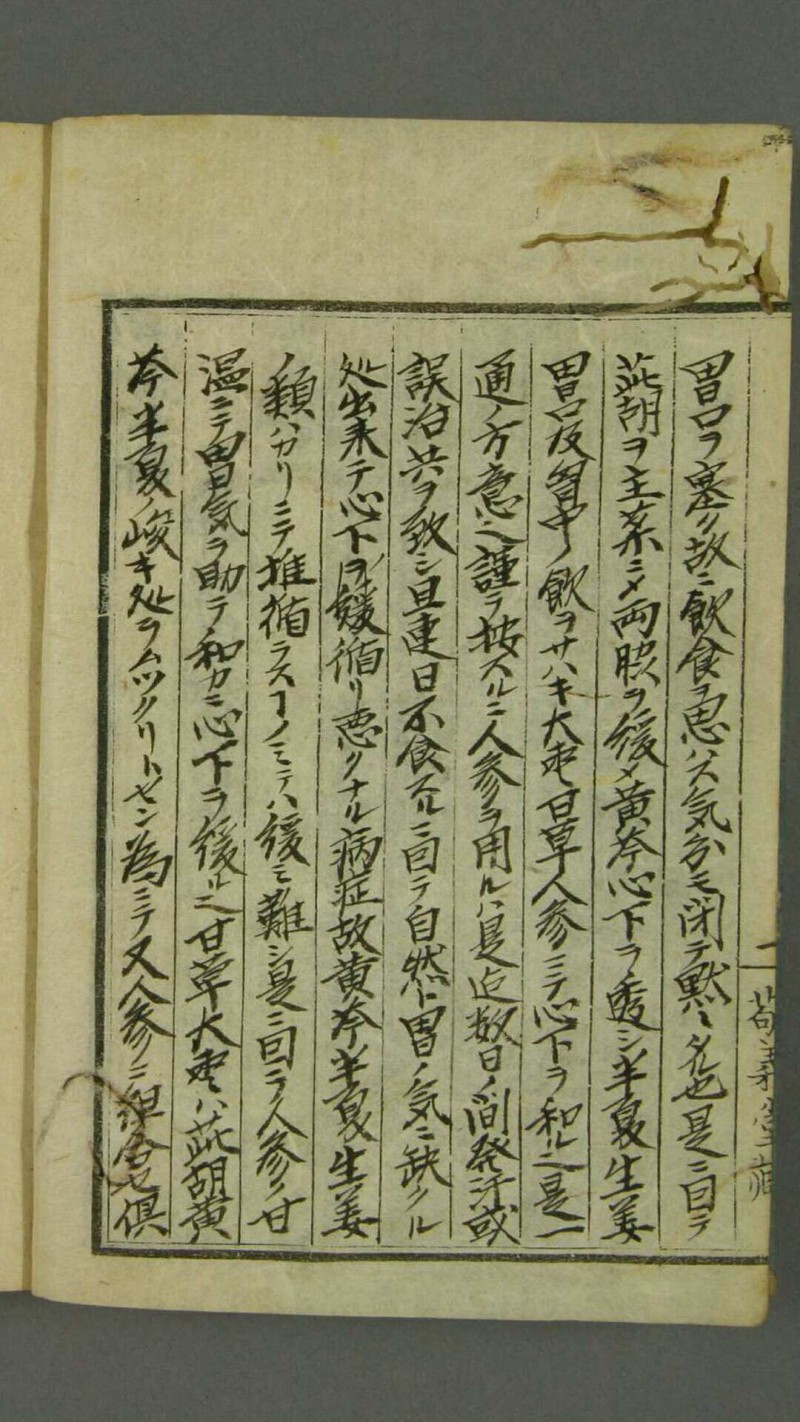 胃口ヲ塞ク故ニ飲食ヲ思ハス気分モ閉テ黙々タル也是ニ因テ
茈胡ヲ主薬ニメ両脇ヲ緩メ黄芩心下ヲ透シ半夏生姜
胃口及胸中ノ飲ヲサハキ大棗甘草人参ニテ心下ヲ和ル之是一
通ノ方意之謹テ按スルニ人参ヲ用ルハ是迄数日ノ間発汗或
誤治共ヲ致シ且連日不食スルニ因テ自然ト胃ノ気ニ缺クル
処出来テ心下ヲ緩循リ悪クナル病症故黄芩半夏生姜
ノ類ハカリニテ推循ラスヿノミテハ緩ミ難シ是ニ因テノ人参ノ甘
温ニテ胃気ヲ助テ和カニ心下ヲ緩ル之甘草大棗ハ茈胡黄
芩半夏ノ峻キ処ヲムツクリトセン為ニテ又人参ノニ組合セ倶
二
堂蔵